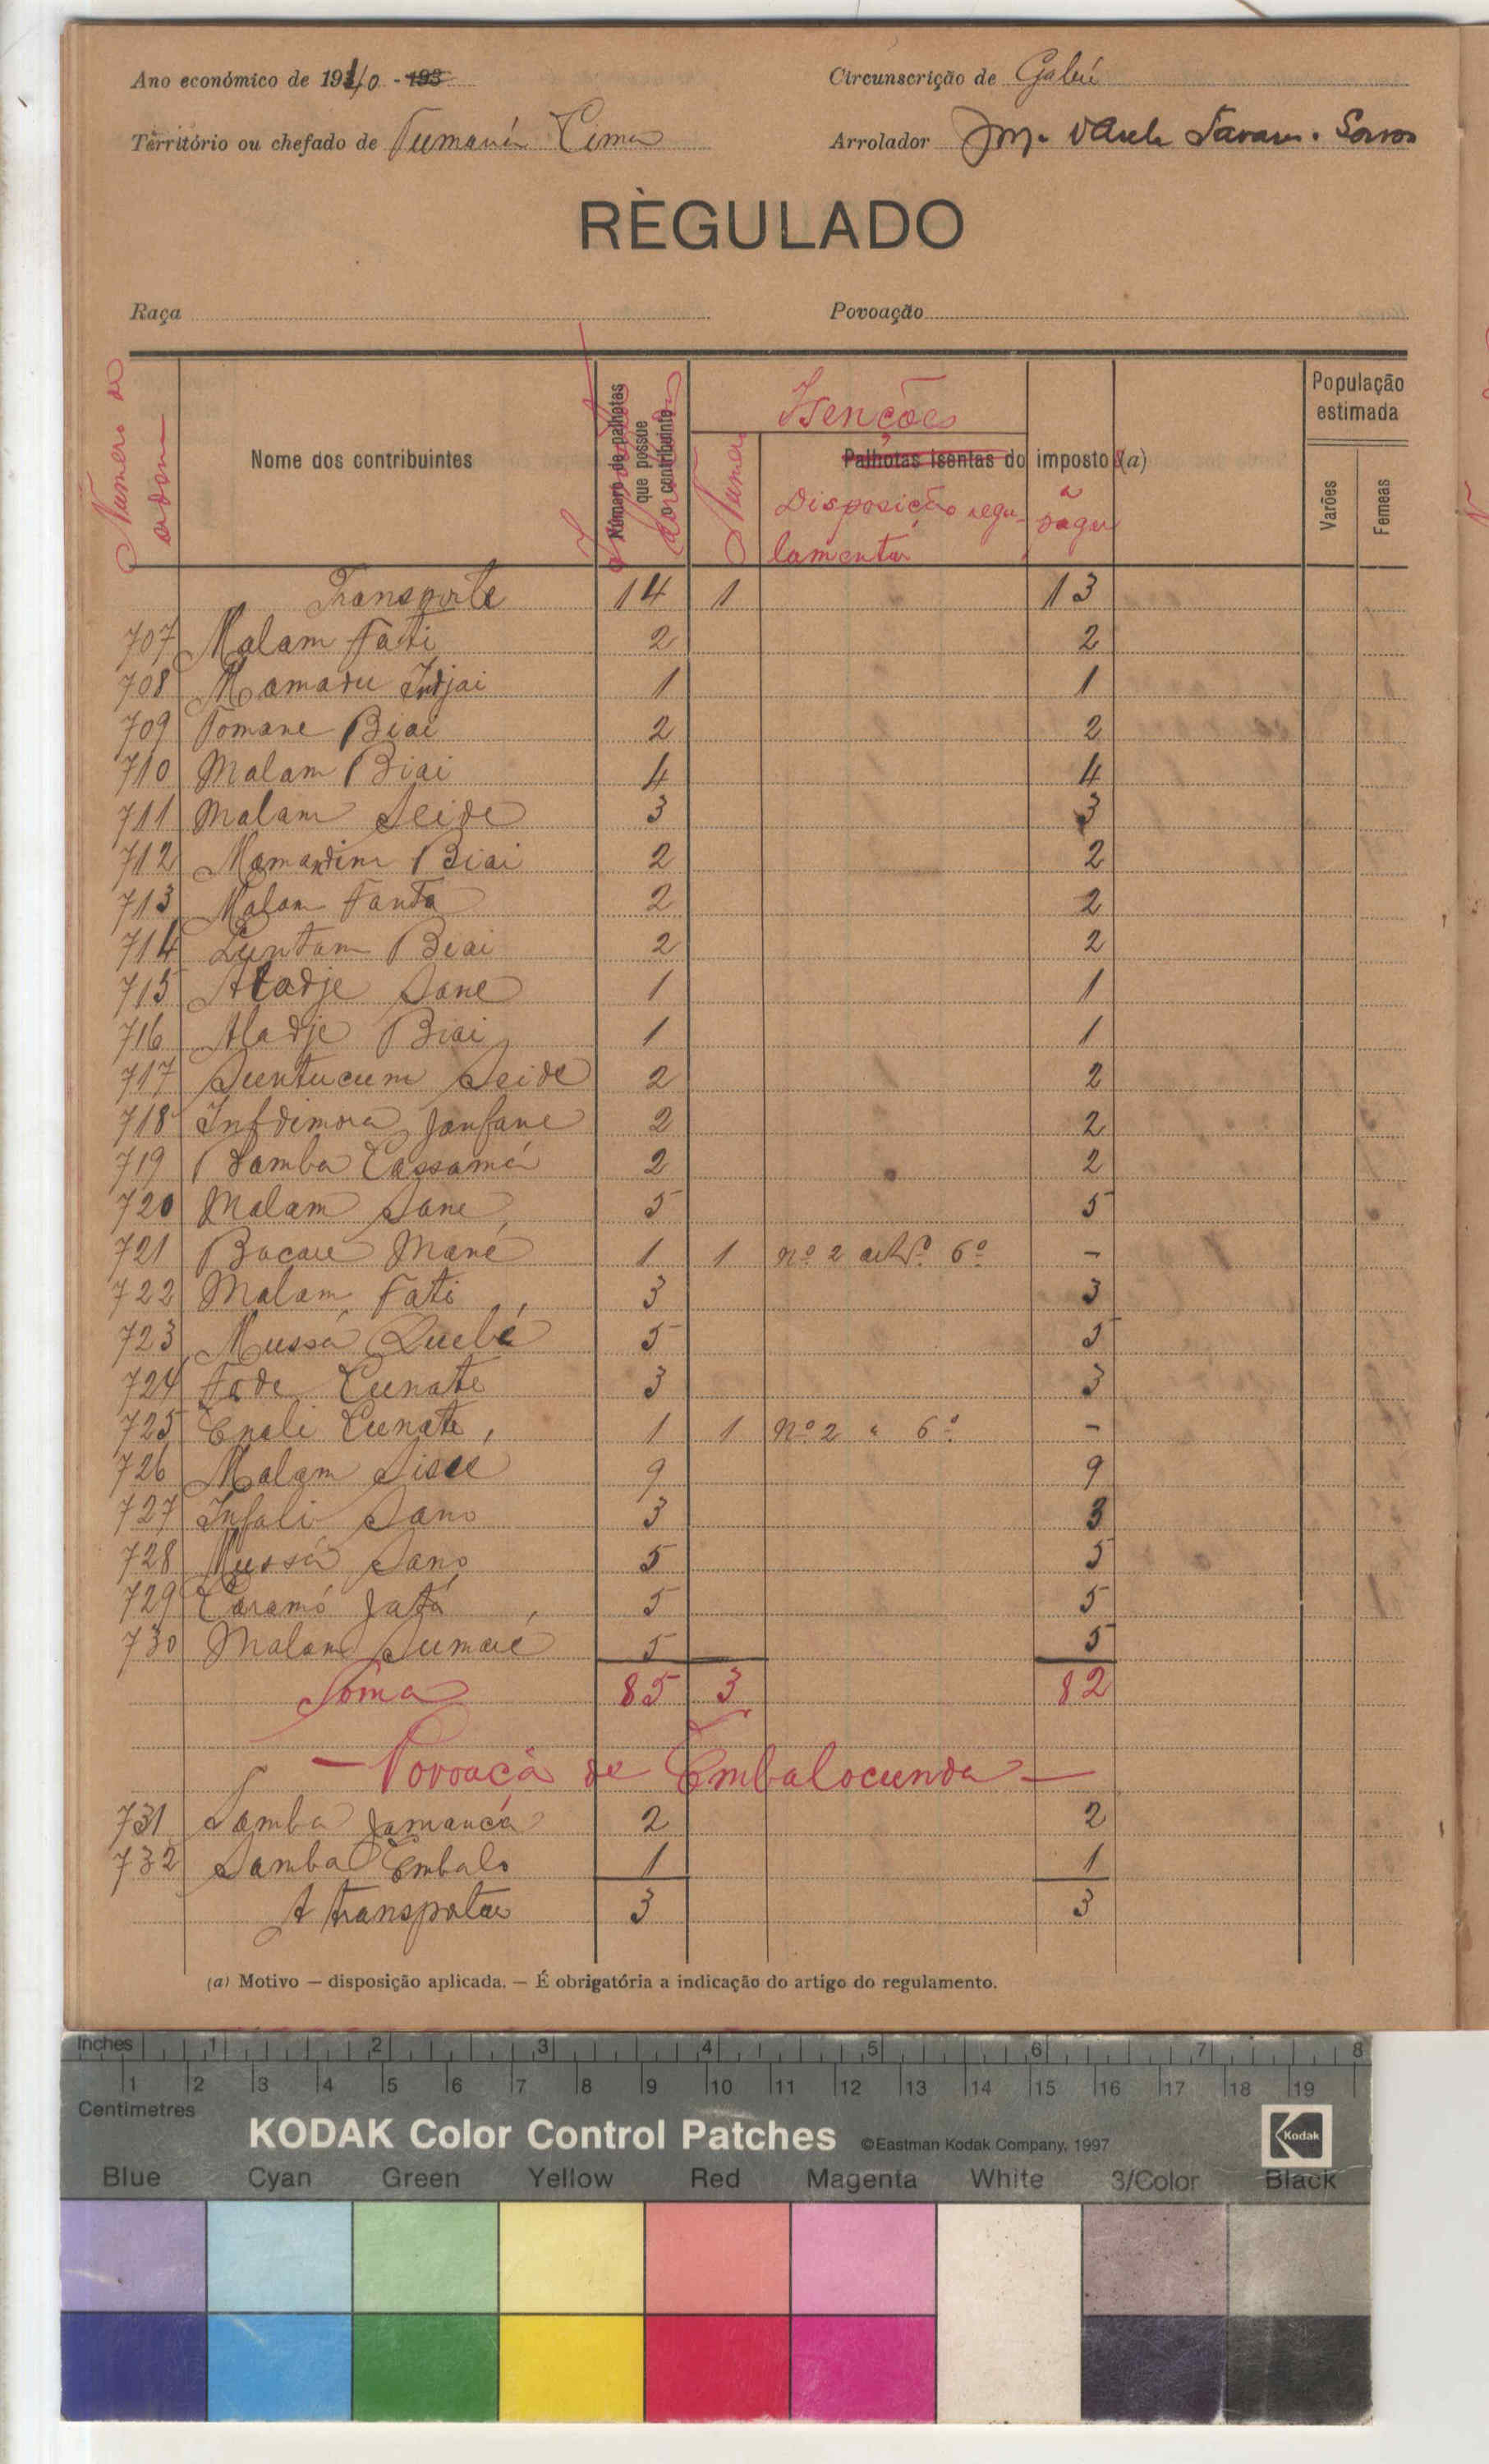 Ano económico de 1940 - 193
Circunscrição de Gabú
Território ou chefado de Tumaná Cima
Arrolador Tavares
RÈGULADO
Raça
Povoação
Numero de ordem
Nome dos contribuintes
Número de palhotas que possue o contribuinte
Isenções
Numero
Palhotas isentas do imposto (a)
Disposição regulamentar
a pagar
População estimada
Varões
Femeas
Transporte 14 1 13
707 Malam Fati 2 2
708 Mamadu Indjai 1 1
709 Tomane Biai 2 2
710 Malam Biai 4 4
711 Malam Seide 3 3
712 Mamandim Biai 2 2
713 Malam Fanta 2 2
714 Luntam Biai 2 2
715 Aladje Sane 1 1
716 Aladje Biai 1 1
717 Suntucum Seide 2 2
718 Janfane 2 2
719 Bamba Cassamá 2 2
720 Malam Sane 5 5
721 Bacar Mané 1 1 nº 2 artº 6º -
722 Malam Fati 3 3
723 Mussá Quebé 5 5
724 Fode Cunate 3 3
725 Cunate 1 1 nº 2 " 6º -
726 Malam Sisse 9 9
727 Infali Sano 3 3
728 Mussá Sano 5 5
729 Caramó Jatá 5 5
730 Malam Sumaré 5 5
Soma 85 3 82
— Povoaçã de Embalocunda —
731 Samba Jamancá 2 2
732 Samba Embalo 1 1
A transportar 3 3
(a) Motivo — disposição aplicada. — É obrigatória a indicação do artigo do regulamento.
Inches 1 2 3 4 5 6 7 8
1 2 3 4 5 6 7 8 9 10 11 12 13 14 15 16 17 18 19
Centimetres
KODAK Color Control Patches ©Eastman Kodak Company, 1997 Kodak
Blue Cyan Green Yellow Red Magenta White 3/Color Black